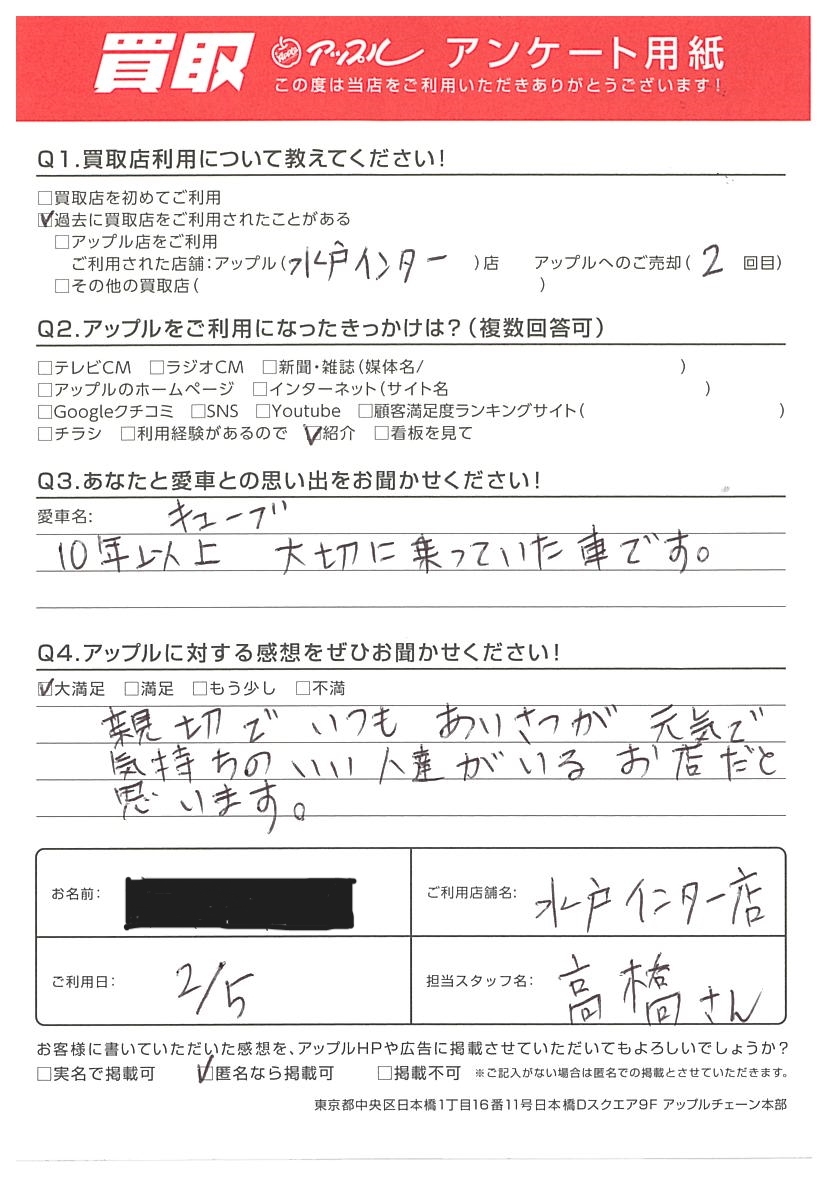 買取 アップル アンケート用紙
この度は当店をご利用いただきありがとうございます!
Q1.買取店利用について教えてください!
□買取店を初めてご利用
☑過去に買取店をご利用されたことがある
□アップル店をご利用
ご利用された店舗:アップル(水戸インター)店 アップルへのご売却(2回目)
□その他の買取店( )
Q2.アップルをご利用になったきっかけは?(複数回答可)
□テレビCM □ラジオCM □新聞・雑誌(媒体名/ )
□アップルのホームページ □インターネット(サイト名 )
□Googleクチコミ □SNS □Youtube □顧客満足度ランキングサイト( )
□チラシ □利用経験があるので ☑紹介 □看板を見て
Q3.あなたと愛車との思い出をお聞かせください!
愛車名: キューブ
10年以上 大切に乗っていた車です。
Q4.アップルに対する感想をぜひお聞かせください!
☑大満足 □満足 □もう少し □不満
親切で いつも あいさつが 元気で
気持ちの いい 人達がいる お店だと
思います。
お名前: ご利用店舗名: 水戸インター店
ご利用日: 2/5 担当スタッフ名: 高橋さん
お客様に書いていただいた感想を、アップルHPや広告に掲載させていただいてもよろしいでしょうか?
□実名で掲載可 ☑匿名なら掲載可 □掲載不可 ※ご記入がない場合は匿名での掲載とさせていただきます。
東京都中央区日本橋1丁目16番11号日本橋Dスクエア9F アップルチェーン本部